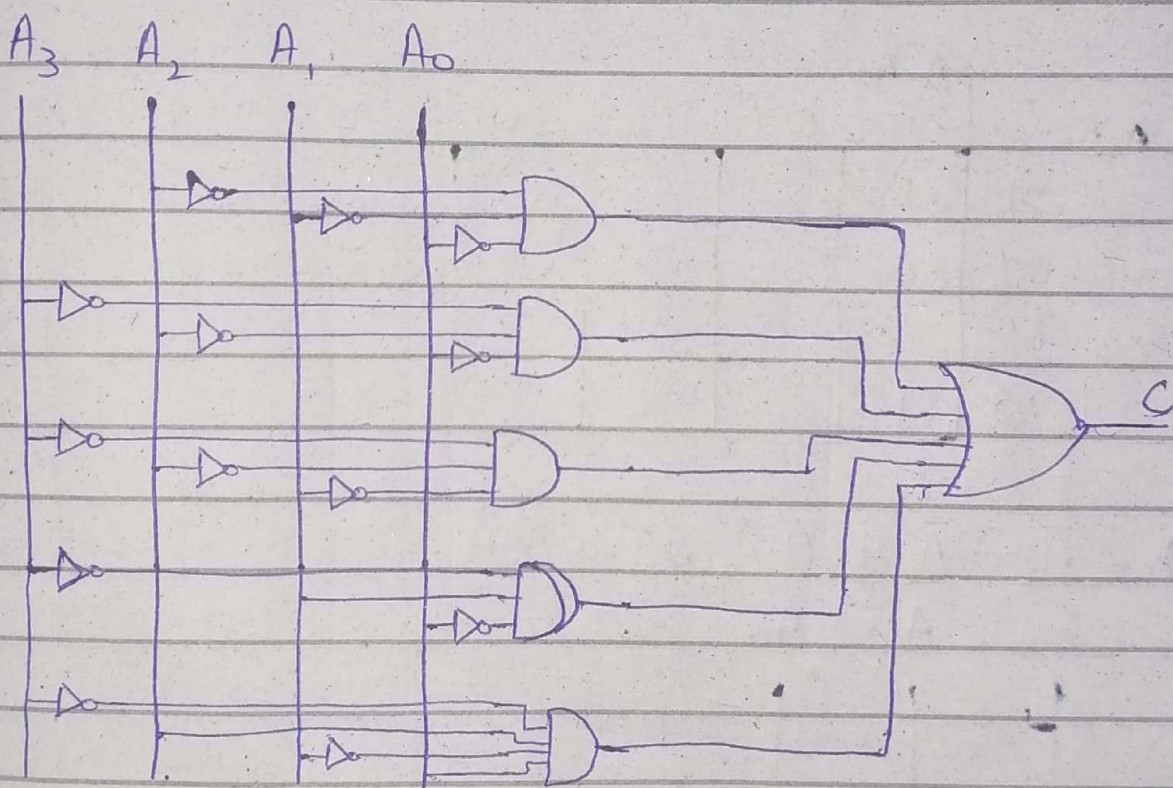 A₃ A₂ A₁ A₀
C